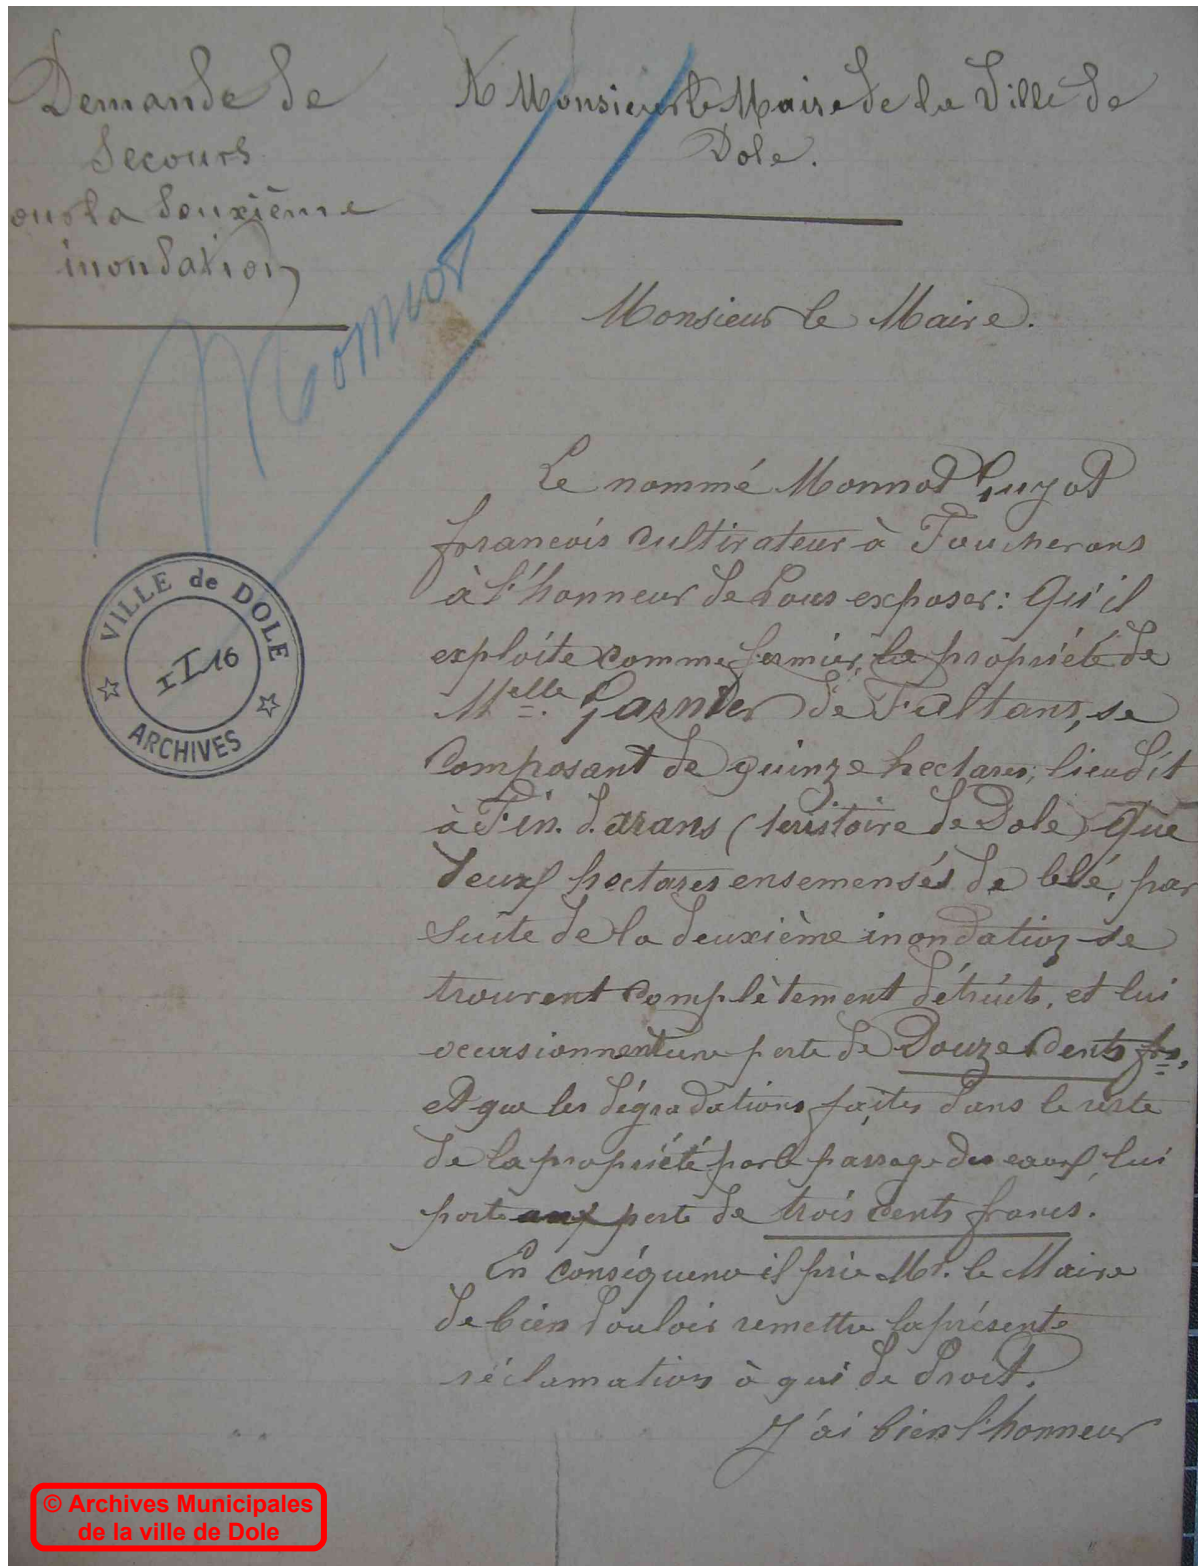 Demande de
Secours
our la deuxième
inondation
A Monsieur le Maire de la Ville de
Dole.
Monnot
Monsieur le Maire.
Le nommé Monnot Guyot
francois cultivateur à Foucherans
à l'honneur de Vous exposer : Qu'il
exploite comme fermier, la propriété de
Melle. Garnier de Faltans, se
Composant de quinze hectares, lieudit
à Fin. d. (territoire de Dole) Que
deux hectares ensemensés de blé, par
suite de la deuxième inondation se
trouvent complètement détruits, et lui
occasionnent une perte de Douze Cents frs,
et que les dégradations faites dans le reste
de la propriété par le passage des eaux, lui
porte perte de trois cents francs.
En conséquence il prie Mr. le Maire
de bien Vouloir remettre la présente
réclamation à qui de droit.
J'ai bien l'honneur
VILLE de DOLE
1 I 16
ARCHIVES
© Archives Municipales
de la ville de Dole